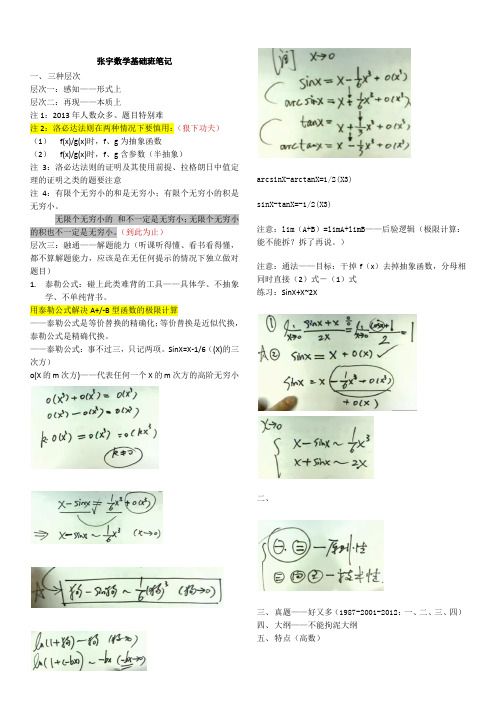 张宇数学基础班笔记
一、三种层次
层次一：感知——形式上
层次二：再现——本质上
注1：2013年人数众多、题目特别难
注2：洛必达法则在两种情况下要慎用：（狠下功夫）
（1） f(x)/g(x)时，f、g为抽象函数
（2） f(x)/g(x)时，f、g含参数（半抽象）
注3：洛必达法则的证明及其使用前提、拉格朗日中值定
理的证明之类的题要注意
注4：有限个无穷小的和是无穷小；有限个无穷小的积是
无穷小。
无限个无穷小的 和不一定是无穷小；无限个无穷小
的积也不一定是无穷小。（到此为止）
层次三：融通——解题能力（听课听得懂、看书看得懂，
都不算解题能力，应该是在无任何提示的情况下独立做对
题目）
1. 泰勒公式：碰上此类难背的工具——具体学、不抽象
学、不单纯背书。
用泰勒公式解决A+/-B型函数的极限计算
——泰勒公式是等价替换的精确化；等价替换是近似代换，
泰勒公式是精确代换。
——泰勒公式：事不过三，只记两项。SinX=X-1/6（(X)的三
次方）
o(X的m次方)——代表任何一个X的m次方的高阶无穷小
o(x³)+o(x³)=o(x³)
o(x³)-o(x³)=o(x³)
k·o(x³)=o(x³)=o(kx³)
k≠0
x-sinx=1/6x³+o(x³)
⇒ x-sinx~1/6x³ (x→0)
狗-sin狗~1/6(狗)³ (狗→0)
ln(1+狗)~狗 (狗→0)
ln(1+(-bx))~-bx (-bx→0)
[例] x→0
sinx=x-1/6x³+o(x³)
arcsinx=x+1/6x³+o(x³)
tanx=x+1/3x³+o(x³)
arctanx=x-1/3x³+o(x³)
arcsinX-arctanX=1/2(X3)
sinX-tanX=-1/2(X3)
注意：lim（A+B）=limA+limB——后验逻辑（极限计算：
能不能拆？拆了再说。）
注意：通法——目标：干掉f（x）去掉抽象函数，分母相
同时直接（2）式－（1）式
练习：SinX+X~2X
① lim x→0 sinx+x/2x 0/0 = lim cosx+1/2 =1
② sinx=x+o(x)
sinx=x-1/6x³+o(x³)
+o(x)
x→0
x-sinx~1/6x³
x+sinx~2x
二、
三、真题——好又多（1987-2001-2012；一、二、三、四）
四、大纲——不能拘泥大纲
五、特点（高数）